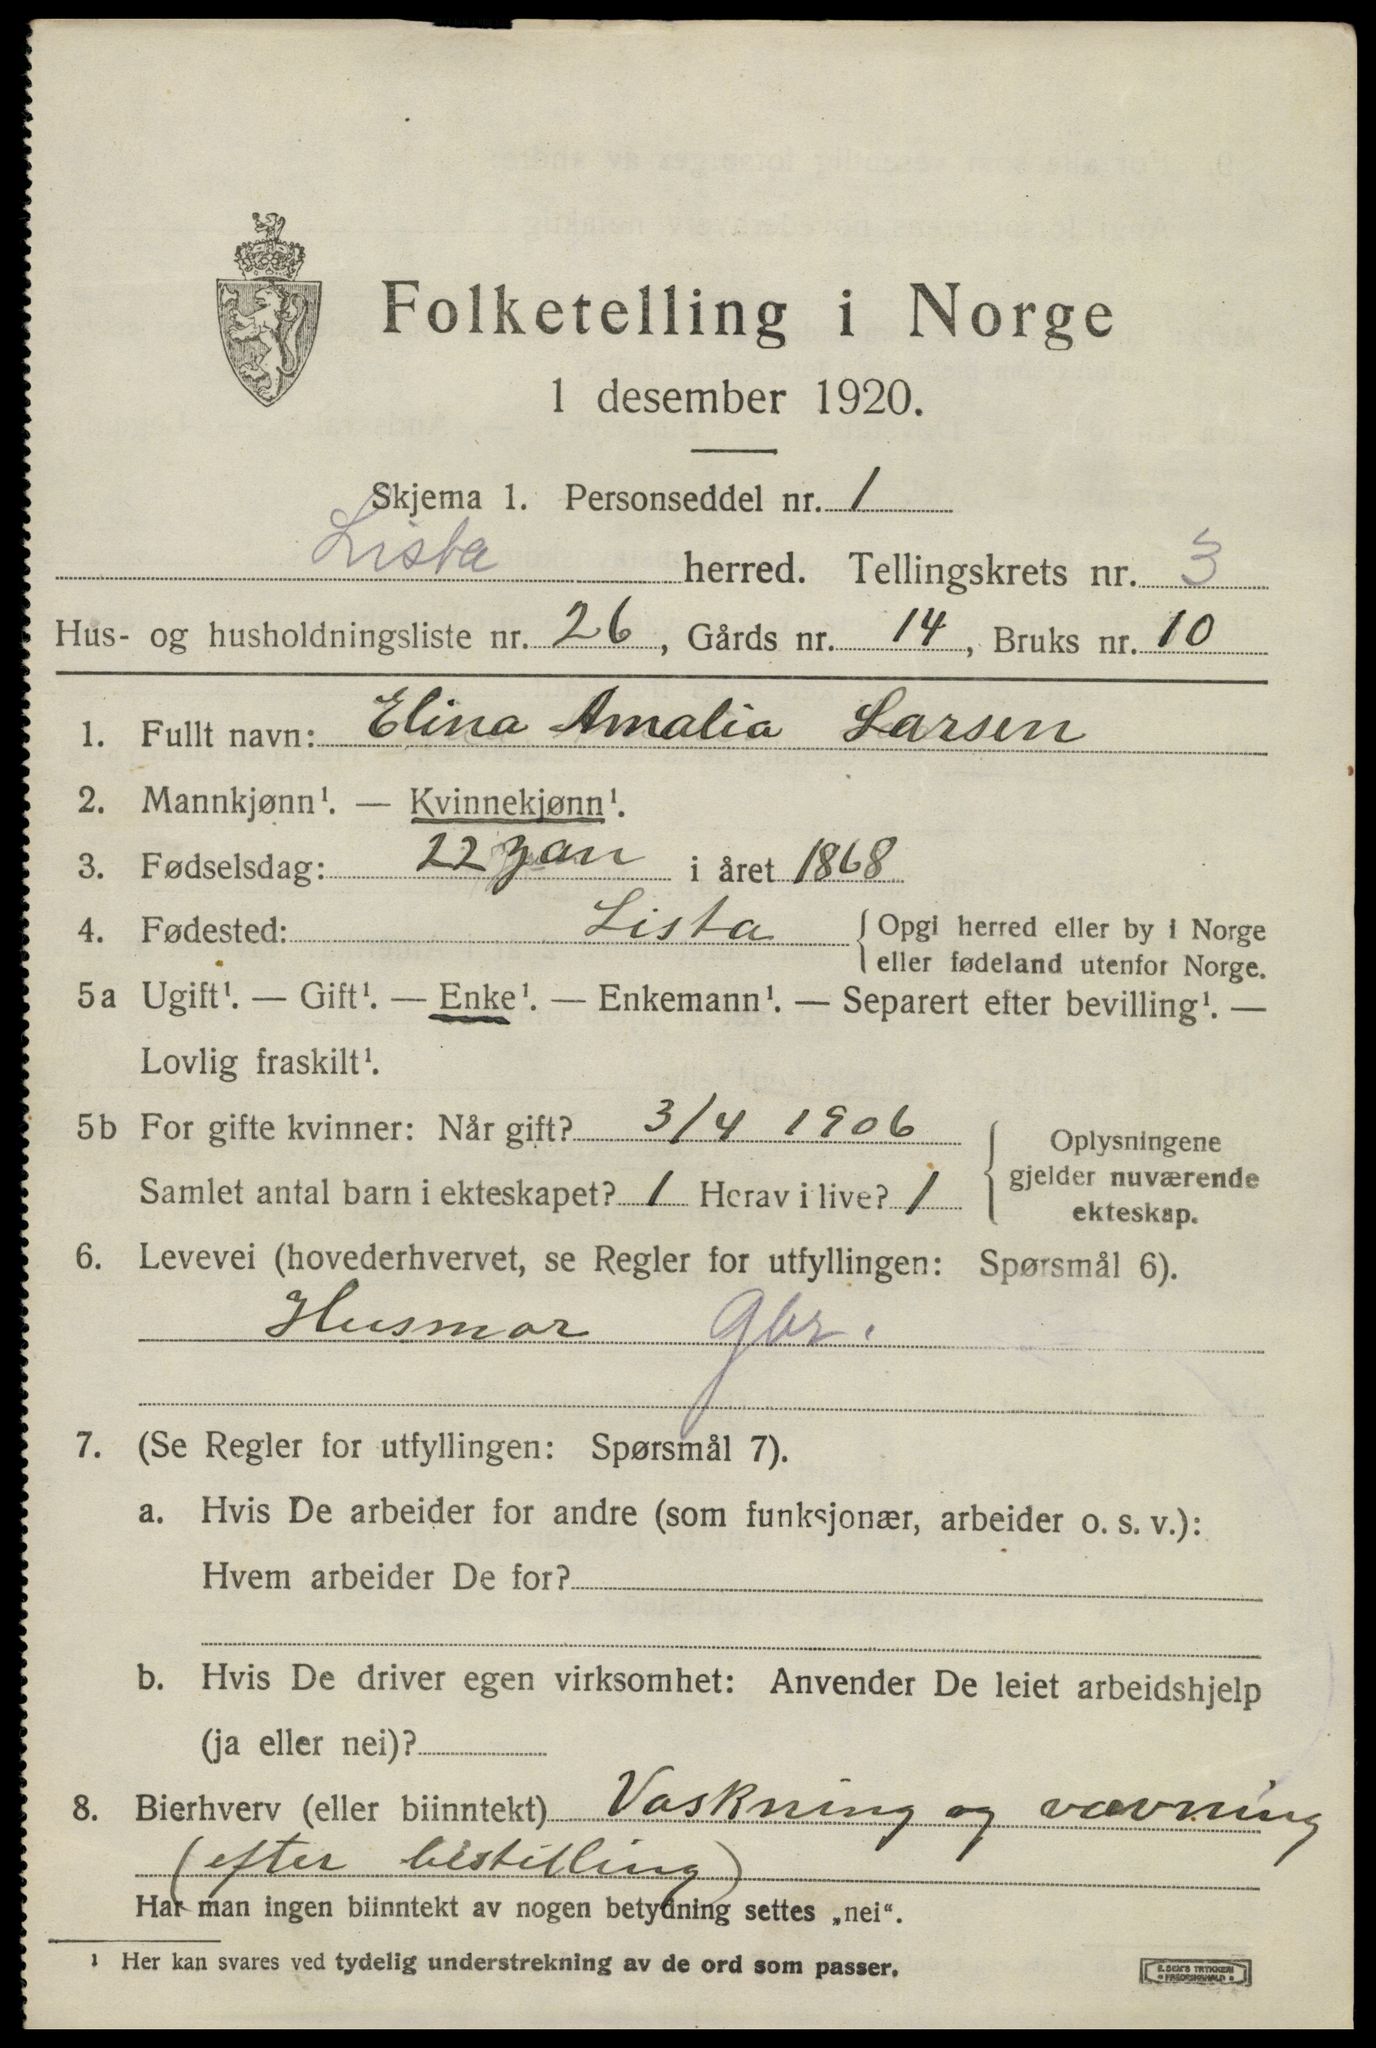 Folketelling i Norge
1 desember 1920.
Skjema 1. Personseddel nr. 1
Lista herred. Tellingskrets nr. 3
Hus- og husholdningsliste nr. 26, Gårds nr. 14, Bruks nr. 10
1. Fullt navn: Elina Amalia Larsen
2. Mannkjønn¹. — Kvinnekjønn¹.
3. Fødselsdag: 22 Jan i året 1868
4. Fødested: Lista { Opgi herred eller by i Norge
eller fødeland utenfor Norge.
5a Ugift¹. — Gift¹. — Enke¹. — Enkemann¹. — Separert efter bevilling¹. —
Lovlig fraskilt¹.
5b For gifte kvinner: Når gift? 3/4 1906
Samlet antal barn i ekteskapet? 1 Herav i live? 1
{ Oplysningene
gjelder nuværende
ekteskap.
6. Levevei (hovederhvervet, se Regler for utfyllingen: Spørsmål 6).
Husmor Gbr.
7. (Se Regler for utfyllingen: Spørsmål 7).
a. Hvis De arbeider for andre (som funksjonær, arbeider o. s. v.):
Hvem arbeider De for?
b. Hvis De driver egen virksomhet: Anvender De leiet arbeidshjelp
(ja eller nei)?
8. Bierhverv (eller biinntekt) Vaskning og vævning
(efter bestilling)
Har man ingen biinntekt av nogen betydning settes „nei“.
¹ Her kan svares ved tydelig understrekning av de ord som passer.
E. SEM'S TRYKKERI
FREDRIKSHALD